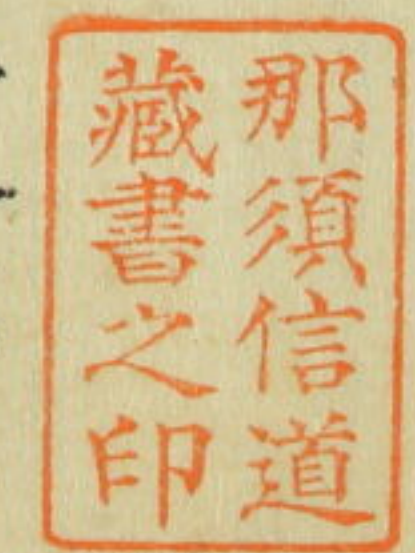 那須信道
藏書之印